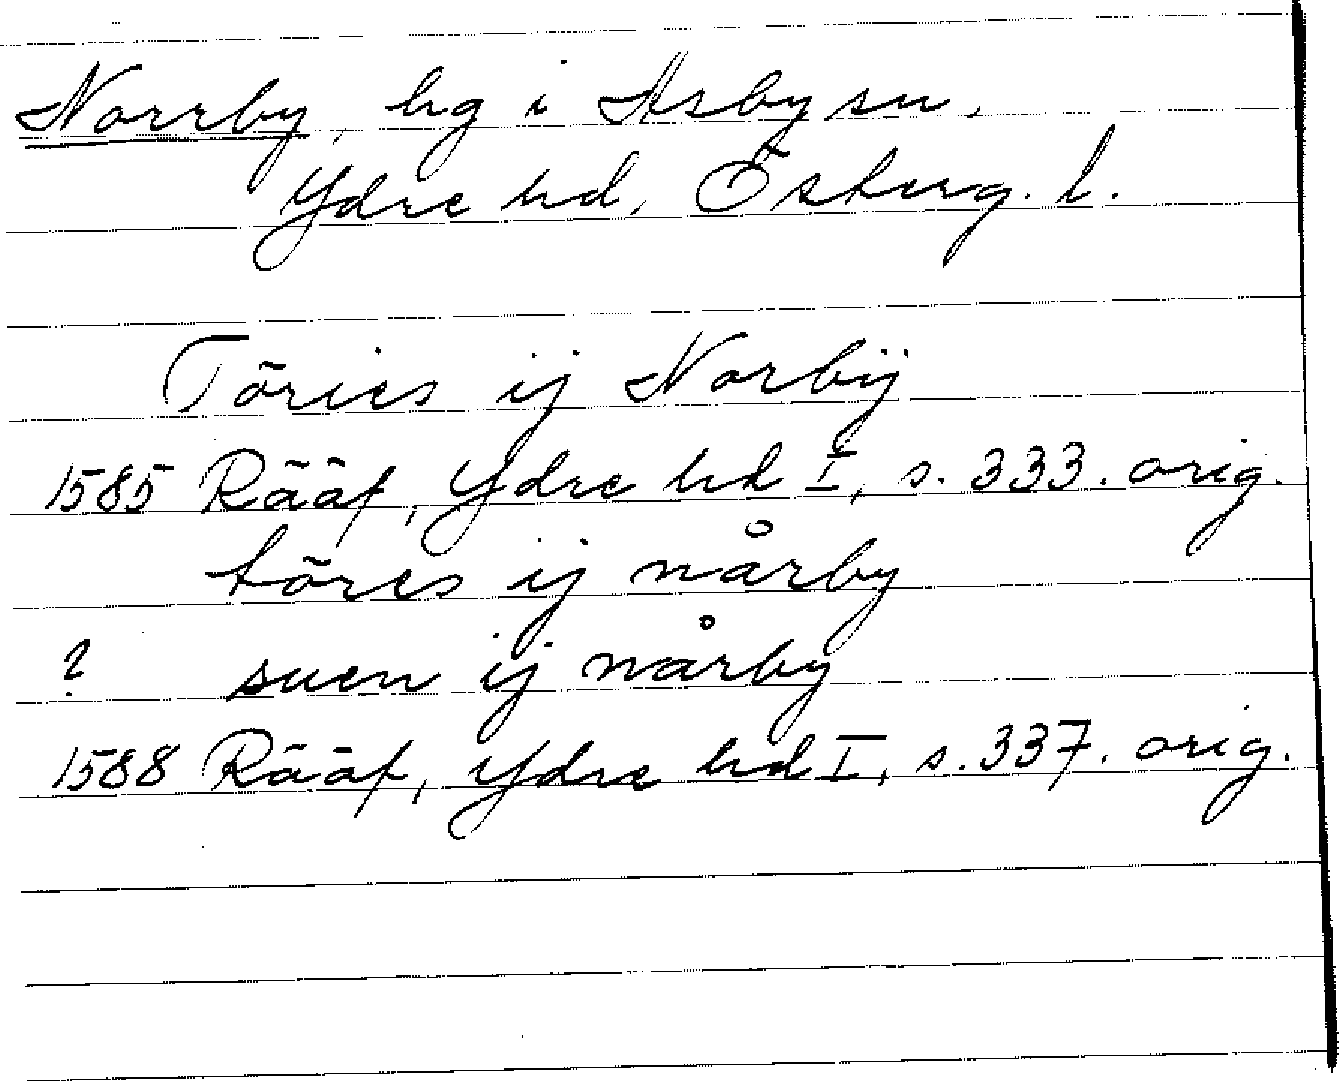 Norrby, hg i Asby sn,
Ydre hd, Österg. l.
Töries ij Norbÿ
1585 Rääf, Ydre hd I, s. 333. orig.
töres ij nårby
? suen ij nårby
1588 Rääf, Ydre hd I, s. 337. orig.